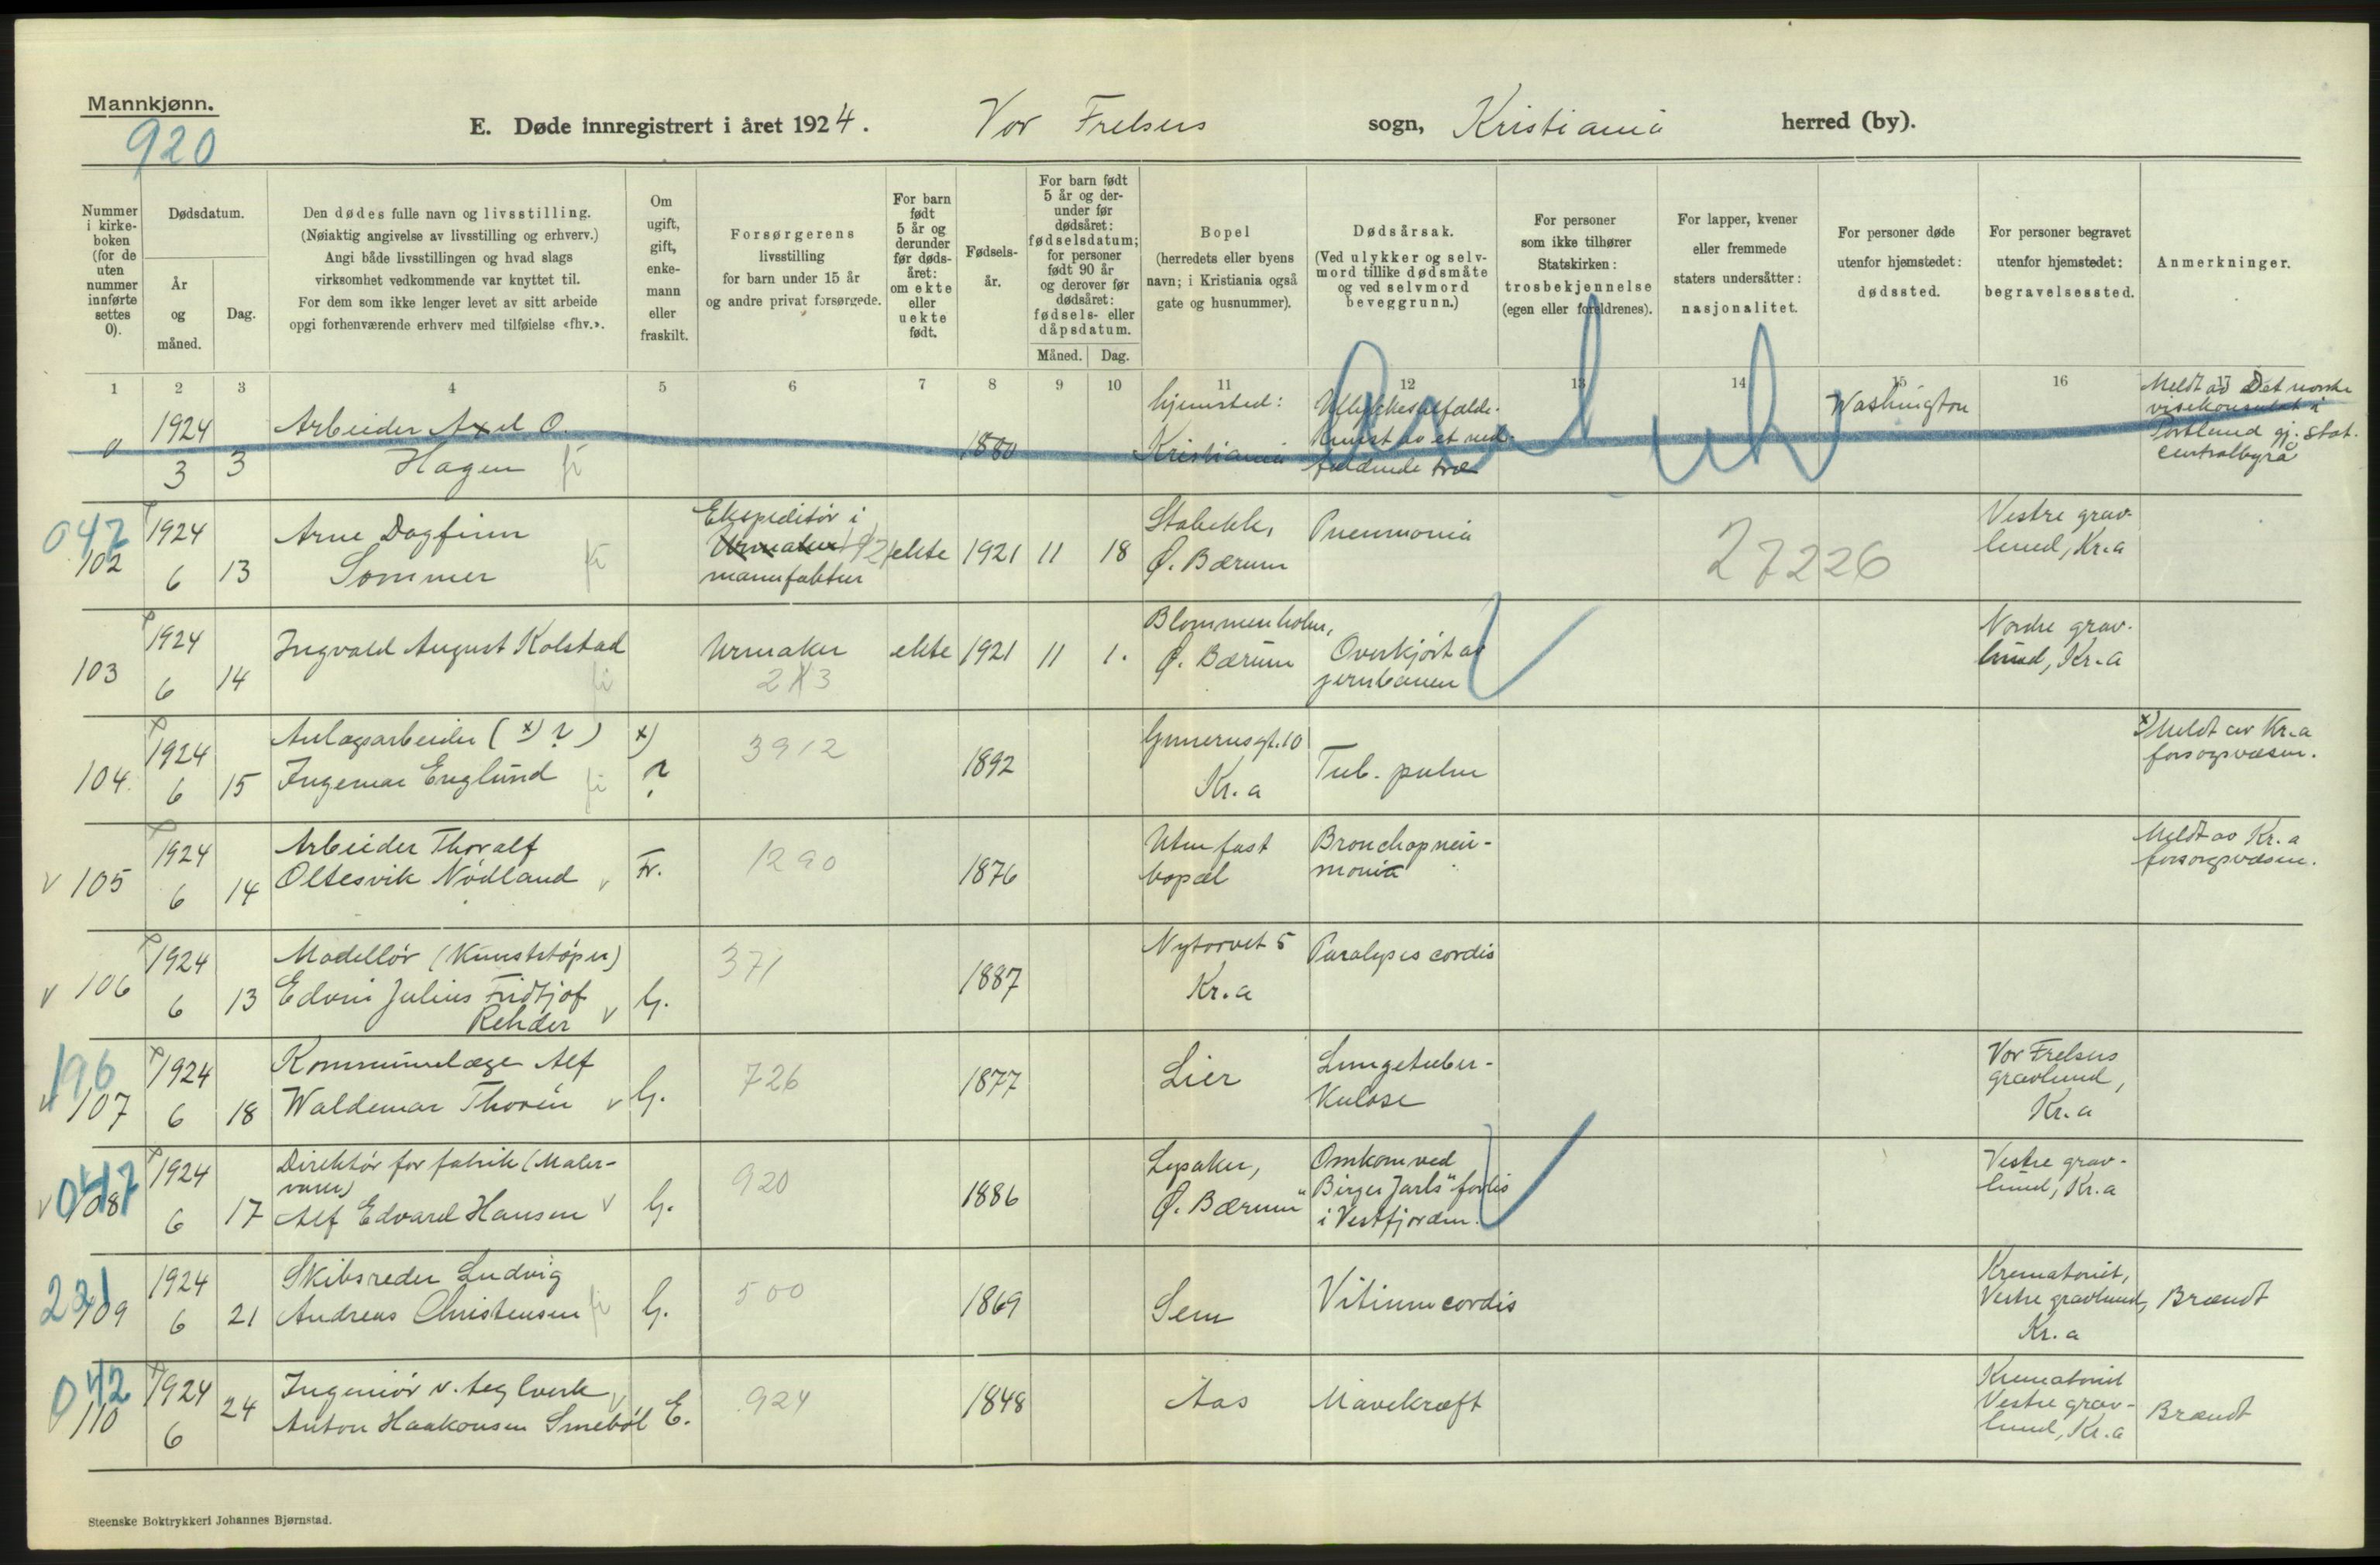 Mannkjønn.
920
E. Døde innregistrert i året 1924. Vor Frelsers sogn, Kristiania herred (by).
Nummer i kirke-boken (for de uten nummer innførte settes 0).
Dødsdatum.
År og måned.
Dag.
Den dødes fulle navn og livsstilling.
(Nøiaktig angivelse av livsstilling og erhverv.)
Angi både livsstillingen og hvad slags
virksomhet vedkommende var knyttet til.
For dem som ikke lenger levet av sitt arbeide
opgi forhenværende erhverv med tilføielse «fhv.».
Om ugift, gift, enke-mann eller fraskilt.
Forsørgerens
livsstilling
for barn under 15 år
og andre privat forsørgede.
For barn født 5 år og derunder før døds-året: om ekte eller uekte født.
Fødsels-år.
For barn født 5 år og der-under før dødsåret: fødselsdatum; for personer født 90 år og derover før dødsåret: fødsels- eller dåpsdatum.
Måned. Dag.
Bopel
(herredets eller byens
navn; i Kristiania også
gate og husnummer).
Dødsårsak.
(Ved ulykker og selv-
mord tillike dødsmåte
og ved selvmord
beveggrunn.)
For personer
som ikke tilhører
Statskirken:
trosbekjennelse
(egen eller foreldrenes).
For lapper, kvener
eller fremmede
staters undersåtter:
nasjonalitet.
For personer døde
utenfor hjemstedet:
dødssted.
For personer begravet
utenfor hjemstedet:
begravelsessted.
Anmerkninger.
1 2 3 4 5 6 7 8 9 10 11 12 13 14 15 16 17
0 1924 3 3 Arbeider Axel O.
Hagen fi
1880
hjemsted:
Kristiania
Ulykkestilfælde.
Knust av et ned-
faldende træ
Washington
Meldt av Det norske
visekonsulat i
Portland gj. Stat.
Centralbyrå
042
102 1924 6 13 Arne Dagfinn
Sommer fi
Ekspeditør i
Urmaker
manufaktur
ekte 1921 11 18
Stabekk,
Ø. Bærum
Pneumonia
27226
Vestre grav-
lund, Kr.a
103 1924 6 14 Ingvald August Kolstad fi
Urmaker
213
ekte 1921 11 1.
Blommenholm,
Ø. Bærum
Overkjørt av
jernbanen
Nordre grav-
lund, Kr.a
104. 1924 6 15 Anlægsarbeider (x) ?)
Ingemar Englund fi
x) ?
3912
1892
Gunerusgt. 10
Kr.a
Tub. pulm
x) Meldt av Kr.a
forsorgsvæsen.
v 105 1924 6 14 Arbeider Thoralf
Oltesvik Nödland v
Fr.
1290
1876
Uten fast
bopæl
Bronchopneu-
monia
Meldt av Kr.a
forsorgsvæsen.
v 106 1924 6 13 Modellør (Kunststøper)
Edvin Julius Fridtjof
Rehder v
G.
371
1887
Nytorvet 5
Kr.a
Paralysis cordis
196
v 107 1924 6 18 Kommunelæge Alf
Waldemar Thorén v
G.
726
1877
Lier
Lungetuber-
kulose
Vor Frelsers
gravlund,
Kr.a
047
v 108 1924 6 17 Direktør for fabrik (Maler-
varer)
Alf Edvard Hansen v
G.
920
1886
Lysaker,
Ø. Bærum
Omkom ved
"Birger Jarls" forlis
i Vestfjorden.
Vestre grav-
lund, Kr.a
221
109 1924 6 21 Skibsreder Ludvig
Andreas Christensen fi
G.
500
1869
Sem
Vitium cordis
Krematoriet,
Vestre gravlund,
Kr.a
Brændt
042
110 1924 6 24 Ingeniør v. teglverk v
Anton Haakonsen Smebøl
E.
924
1848
Aas
Mavekræft
Krematoriet
Vestre grav-
lund, Kr.a
Brændt
Steenske Boktrykkeri Johannes Bjørnstad.